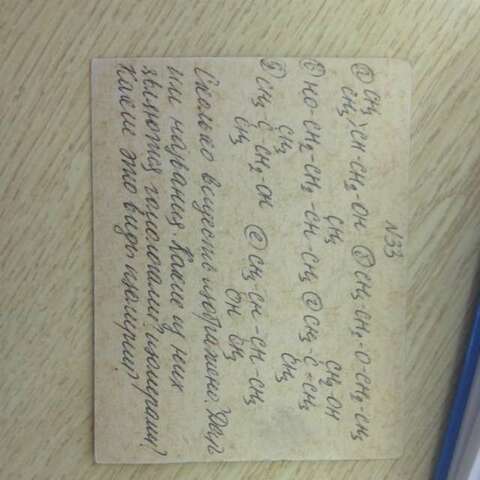 №33
а) CH₃
CH₃ > CH-CH₂-OH д) CH₃-CH₂-O-CH₂-CH₃
CH₃ CH₂-OH
HO-CH₂-CH₂-CH-CH₃ CH₃-C-CH₃
CH₃ CH₃
CH₃-C-CH₂-OH е) CH₃-CH-CH-CH₃
CH₃ OH CH₃
Сколько веществ изображено? Дай
им названия. Какие из них
являются гомологами? изомерами?
Какие это виды изомерии?